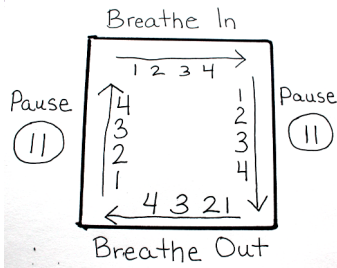 Breathe In
1 2 3 4
Pause
11
4
3
2
1
1
2
3
4
Pause
11
4 3 2 1
Breathe Out